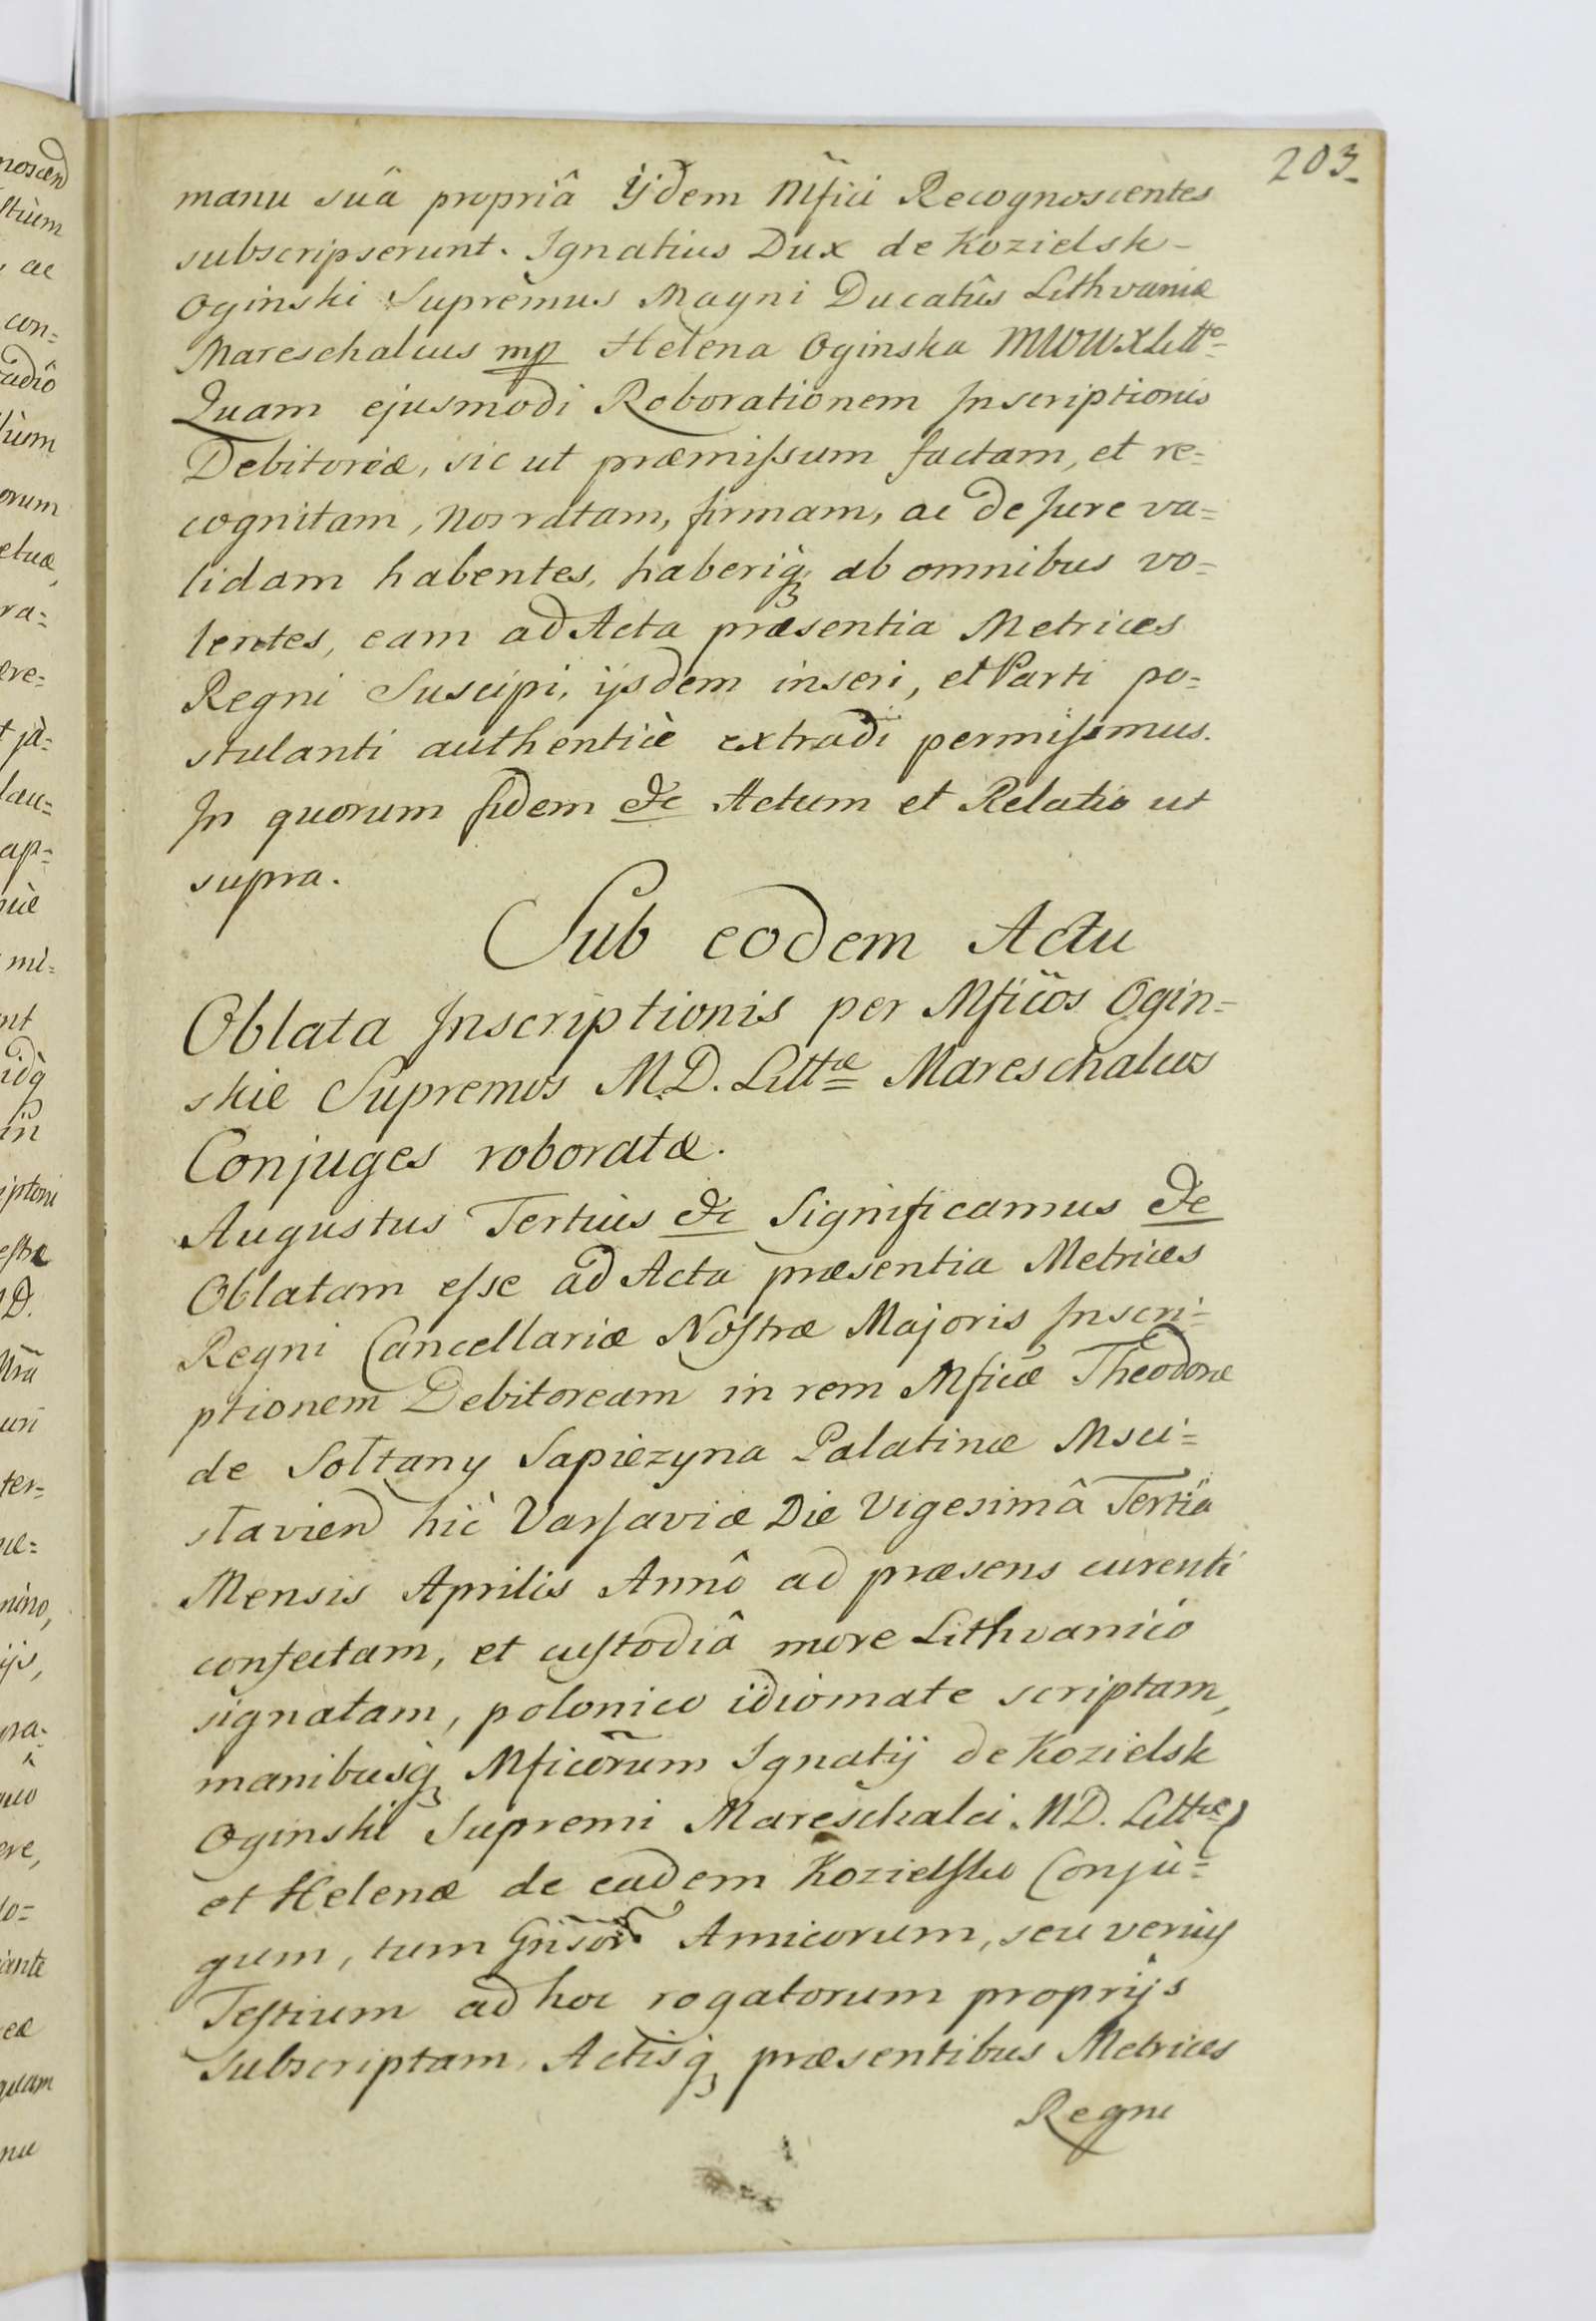 203
manu suâ propriâ ijdem Mfici Recognoscentes
subscripserunt. Ignatius Dux de Kozielsk
Oginski Supremus Magni Ducatûs Lithvaniæ
Mareschalcus mp Helena Oginska MWWXLitt
Quam ejusmodi Roborationem Inscriptionis
Debitoreæ, sic ut præmissum factam, et re=
cognitam, Nos ratam, firmam, ac de Jure va=
lidam habentes, haberiq; ab omnibus vo=
lentes, eam ad Acta præsentia Metrices
Regni Suscipi, ijsdem inseri, et Parti po=
stulanti authenticè extradi permisimus.
In quorum fidem &c Actum et Relatio ut
supra.
Sub eodem Actu
Oblata Inscriptionis per Mficos Ogin=
skie Supremos M.D. Littæ Mareschalcos
Conjuges roboratæ.
Augustus Tertius &c Significamus &c
Oblatam esse ad Acta præsentia Metrices
Regni Cancellariæ Nostræ Majoris Inscri=
ptionem Debitoream in rem Mficæ Theodoræ
de Sołtany Sapiezyna Palatinæ Msci=
slavien hìc Varsaviæ Die Vigesimâ Tertiâ
Mensis Aprilis Annô ad præsens curenti
confectam, et custodiâ more Lithvanico
signatam, polonico idiomate scriptam,
manibusq; Mficorum Ignatij de Kozielsk
Oginski Supremi Mareschalci M.D. Littæ
et Helenæ de eadem Kozielsko Conju=
gum, tum Gnsor Amicorum, seu verius
Testium ad hoc rogatorum proprijs
Subscriptam, Actisq; præsentibus Metrices
Regni